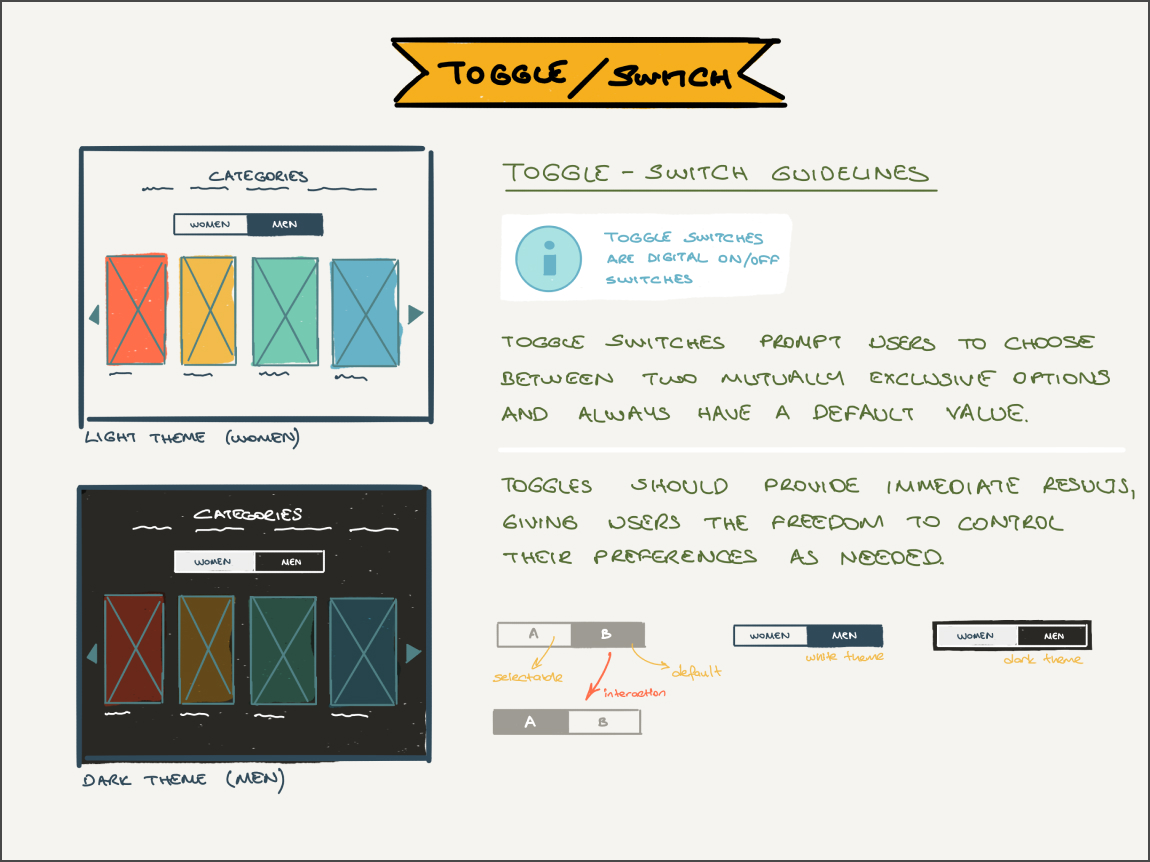 TOGGLE/SWITCH
CATEGORIES
WOMEN MEN
LIGHT THEME (WOMEN)
CATEGORIES
WOMEN MEN
DARK THEME (MEN)
TOGGLE - SWITCH GUIDELINES
i
TOGGLE SWITCHES
ARE DIGITAL ON/OFF
SWITCHES
TOGGLE SWITCHES PROMPT USERS TO CHOOSE
BETWEEN TWO MUTUALLY EXCLUSIVE OPTIONS
AND ALWAYS HAVE A DEFAULT VALUE.
TOGGLES SHOULD PROVIDE IMMEDIATE RESULTS,
GIVING USERS THE FREEDOM TO CONTROL
THEIR PREFERENCES AS NEEDED.
A B
selectable
default
interaction
A B
WOMEN MEN
white theme
WOMEN MEN
dark theme